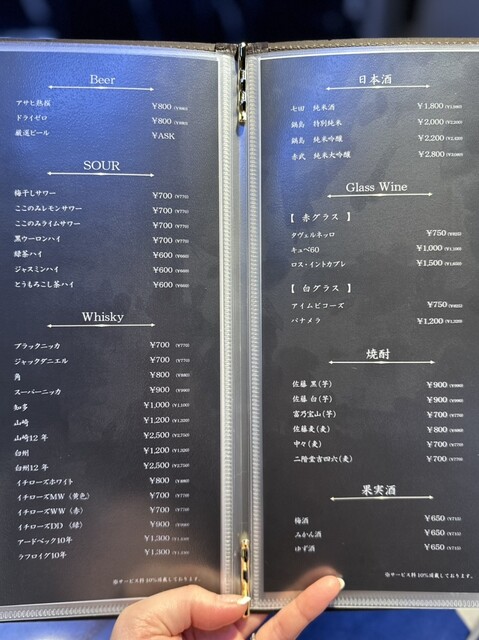 Beer
アサヒ熟撰 ¥800 (¥880)
ドライゼロ ¥800 (¥880)
厳選ビール ¥ASK
SOUR
梅干しサワー ¥700 (¥770)
ここのみレモンサワー ¥700 (¥770)
ここのみライムサワー ¥700 (¥770)
黒ウーロンハイ ¥700 (¥770)
緑茶ハイ ¥600 (¥660)
ジャスミンハイ ¥600 (¥660)
とうもろこし茶ハイ ¥600 (¥660)
Whisky
ブラックニッカ ¥700 (¥770)
ジャックダニエル ¥700 (¥770)
角 ¥800 (¥880)
スーパーニッカ ¥900 (¥990)
知多 ¥1,000 (¥1,100)
山崎 ¥1,200 (¥1,320)
山崎12 年 ¥2,500 (¥2,750)
白州 ¥1,200 (¥1,320)
白州12 年 ¥2,500 (¥2,750)
イチローズホワイト ¥800 (¥880)
イチローズMW（黄色） ¥700 (¥770)
イチローズWW（赤） ¥700 (¥770)
イチローズDD（緑） ¥900 (¥990)
アードベック10年 ¥1,300 (¥1,430)
ラフロイグ10年 ¥1,300 (¥1,430)
サービス料10%頂戴しております。
日本酒
七田 純米酒 ¥1,800 (¥1,980)
鍋島 特別純米 ¥2,000 (¥2,200)
鍋島 純米吟醸 ¥2,200 (¥2,420)
赤武 純米大吟醸 ¥2,800 (¥3,080)
Glass Wine
【 赤グラス 】
タヴェルネッロ ¥750 (¥825)
キュベ60 ¥1,000 (¥1,100)
ロス・イントカブレ ¥1,500 (¥1,650)
【 白グラス 】
アイムビコーズ ¥750 (¥825)
パナメラ ¥1,200 (¥1,320)
焼酎
佐藤 黒(芋) ¥900 (¥990)
佐藤 白(芋) ¥900 (¥990)
富乃宝山(芋) ¥700 (¥770)
佐藤麦(麦) ¥800 (¥880)
中々(麦) ¥700 (¥770)
二階堂吉四六(麦) ¥700 (¥770)
果実酒
梅酒 ¥650 (¥715)
みかん酒 ¥650 (¥715)
ゆず酒 ¥650 (¥715)
サービス料10%頂戴しております。